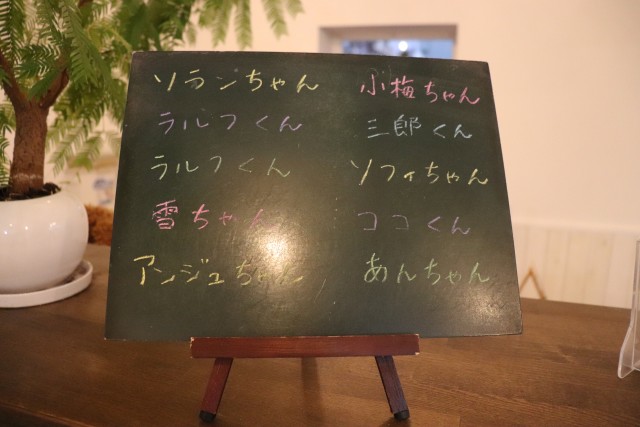 ソランちゃん
ラルフくん
ラルフくん
雪ちゃん
アンジュちゃん
小梅ちゃん
三郎くん
ソフィちゃん
ココくん
あんちゃん